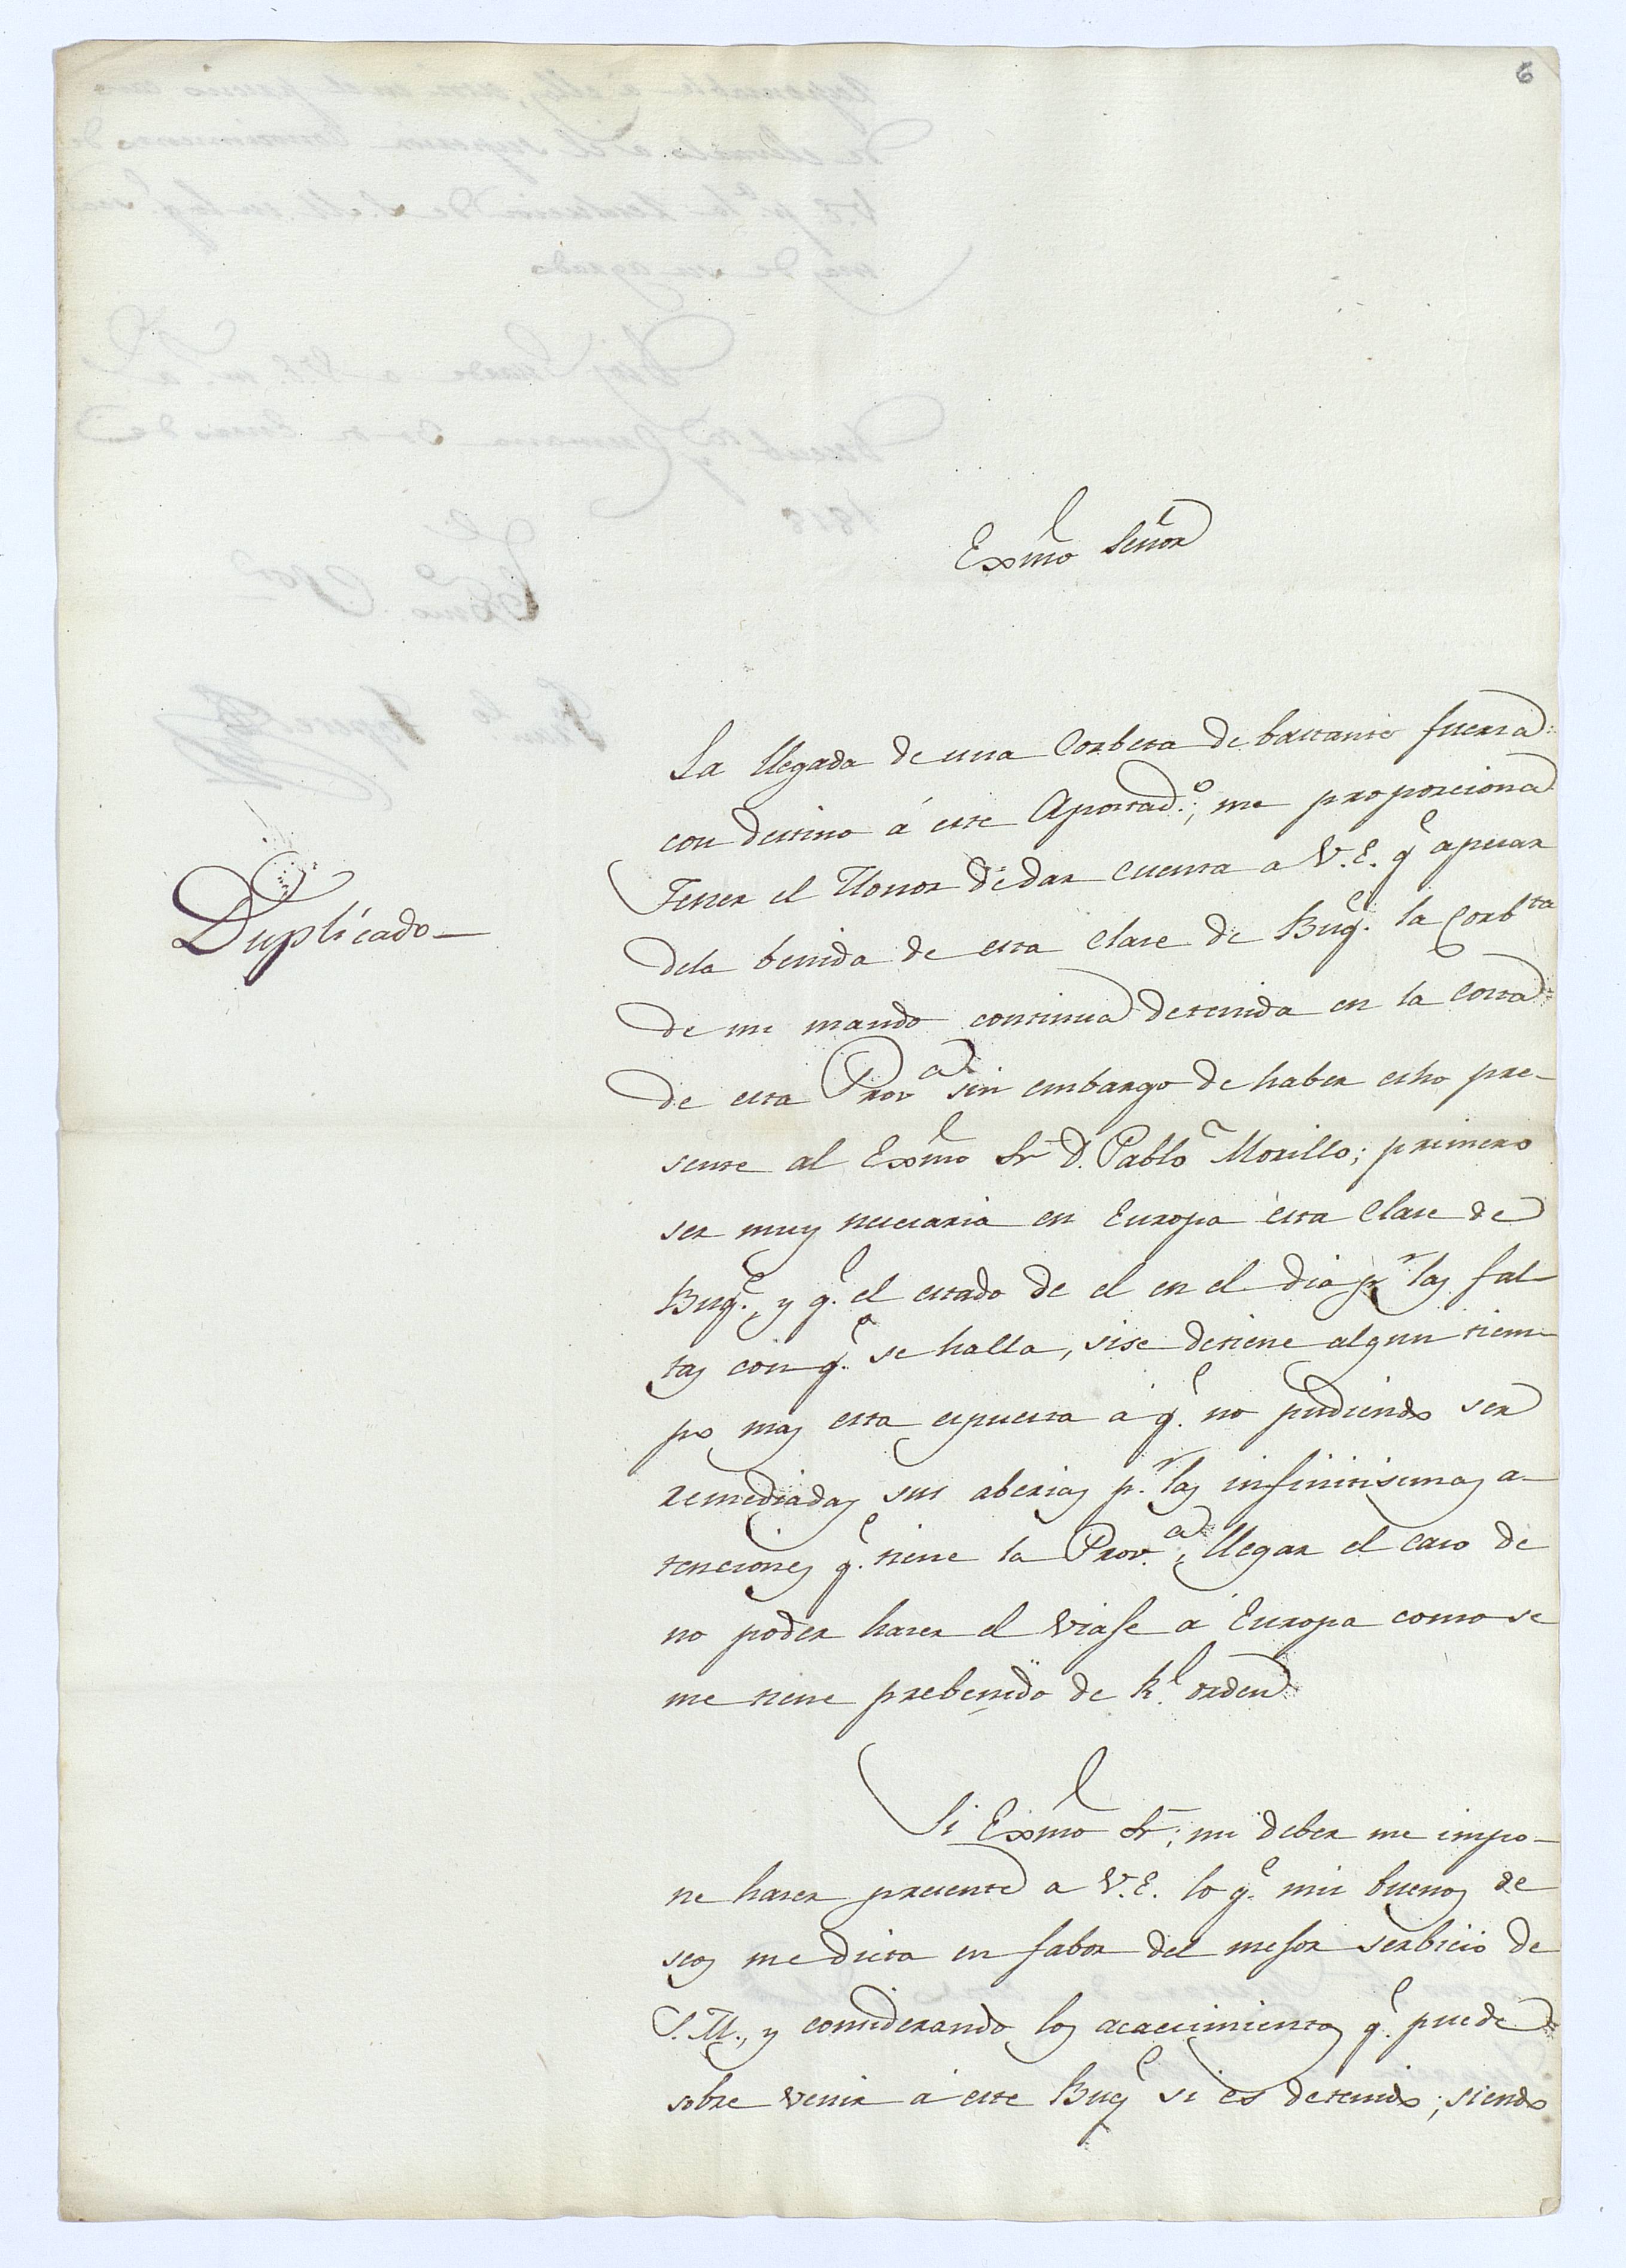 6
Exmo Señor
La llegada de una Corbeta de bastante fuerza
con destino á este Apostad.o; me proporciona
Tener el Honor de dar cuenta a V.E. q.e apesar
dela benida de esta clase de Buq.e la Corb.ta
de mi mando continua detenida en la Costa
de esta Prov.a sin embargo de haber echo pre-
sente al Exmo Sr D. Pablo Morillo; primero
ser muy necesaria en Europa esta Clase de
Buq.e, y q.e el estado de el en el dia p.r las fal-
tas con q.e se halla, sise detiene algun tiem-
po mas esta espuesta á q.e no pudiendo ser
remediadas sus aberias p.r las infinitisimas a-
tenciones q.e tiene la Prov.a, llegar el caso de
no poder hacer el Viaje á Europa como se
me tiene prebenido de R.l orden
Duplicado-
Si Exmo Sr; mi deber me impo-
ne hacer presente a V.E. lo q.e mis buenos de
seos me dicta en fabor del mejor serbicio de
S.M., y considerando los acaecimientos q.e puede
sobre venir á este Buq.e si es detenido; siendo